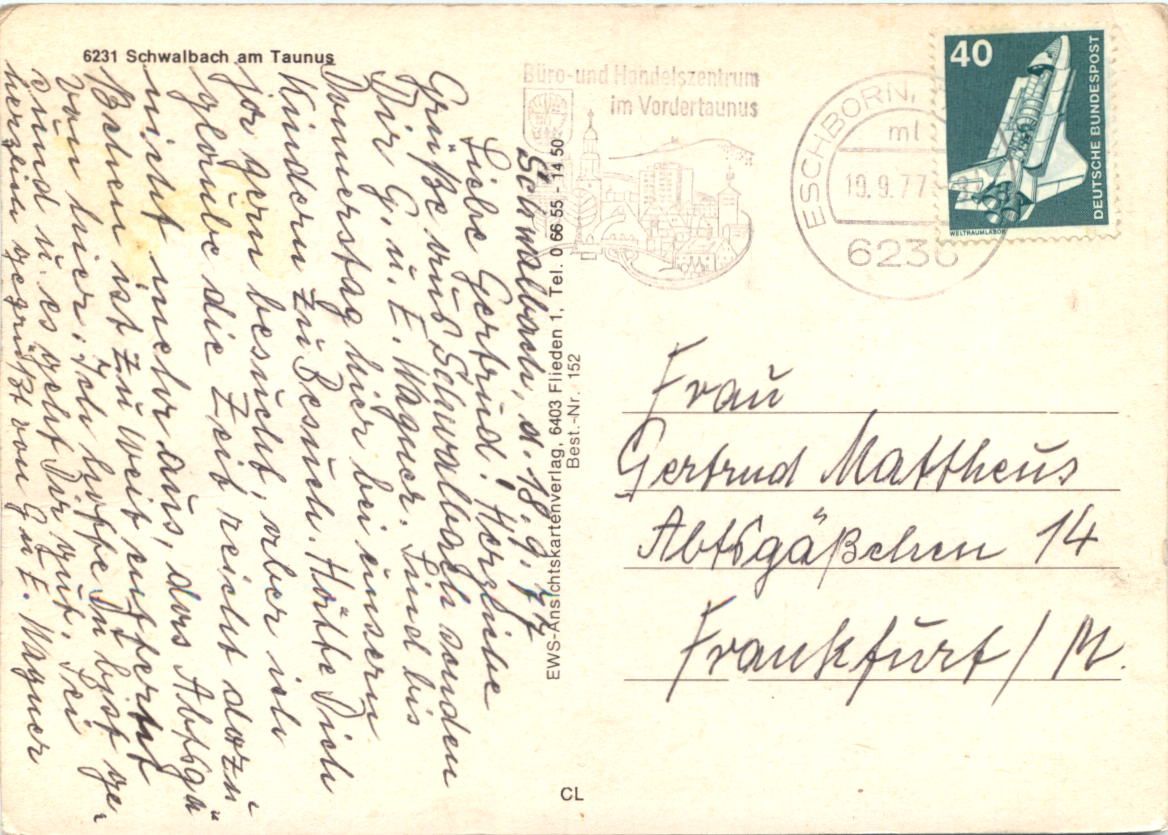 6231 Schwalbach am Taunus
Schwalbach, d. 18.9.77
Liebe Gertrud! Herzliche
Grüße aus Schwalbach senden
Dir G. u. E. Wagner. Sind bis
Donnerstag hier bei unsern
Kindern zu Besuch. Hätte Dich
gern besucht, aber ich
glaube die Zeit reicht dazu
nicht mehr aus, das Abtsgä
ist zu weit entfernt
von hier. Ich hoffe Du bist ge-
sund u. es geht Dir gut. Sei
herzlich gegrüßt von G. u. E. Wagner
EWS-Ansichtskartenverlag, 6403 Flieden 1, Tel. 0 66 55 - 14 50
Best.-Nr. 152
CL
Büro- und Handelszentrum
im Vordertaunus
ESCHBORN,
ml
19.9.77
6236
40
DEUTSCHE BUNDESPOST
WELTRAUMLABOR
Frau
Gertrud Mattheus
Abtsgäßchen 14
Frankfurt / M.